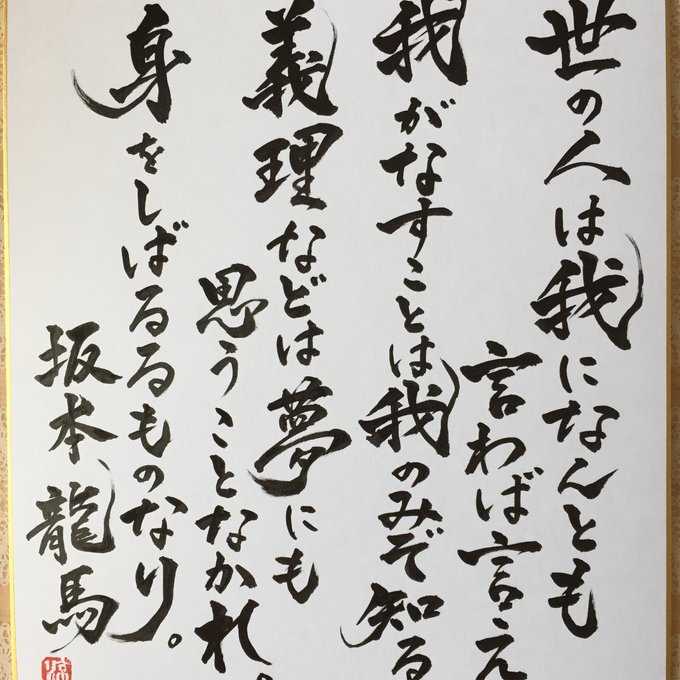 世の人は我になんとも
言わば言え
我がなすことは我のみぞ知る
義理などは夢にも
思うことなかれ。
身をしばるるものなり。
坂本龍馬